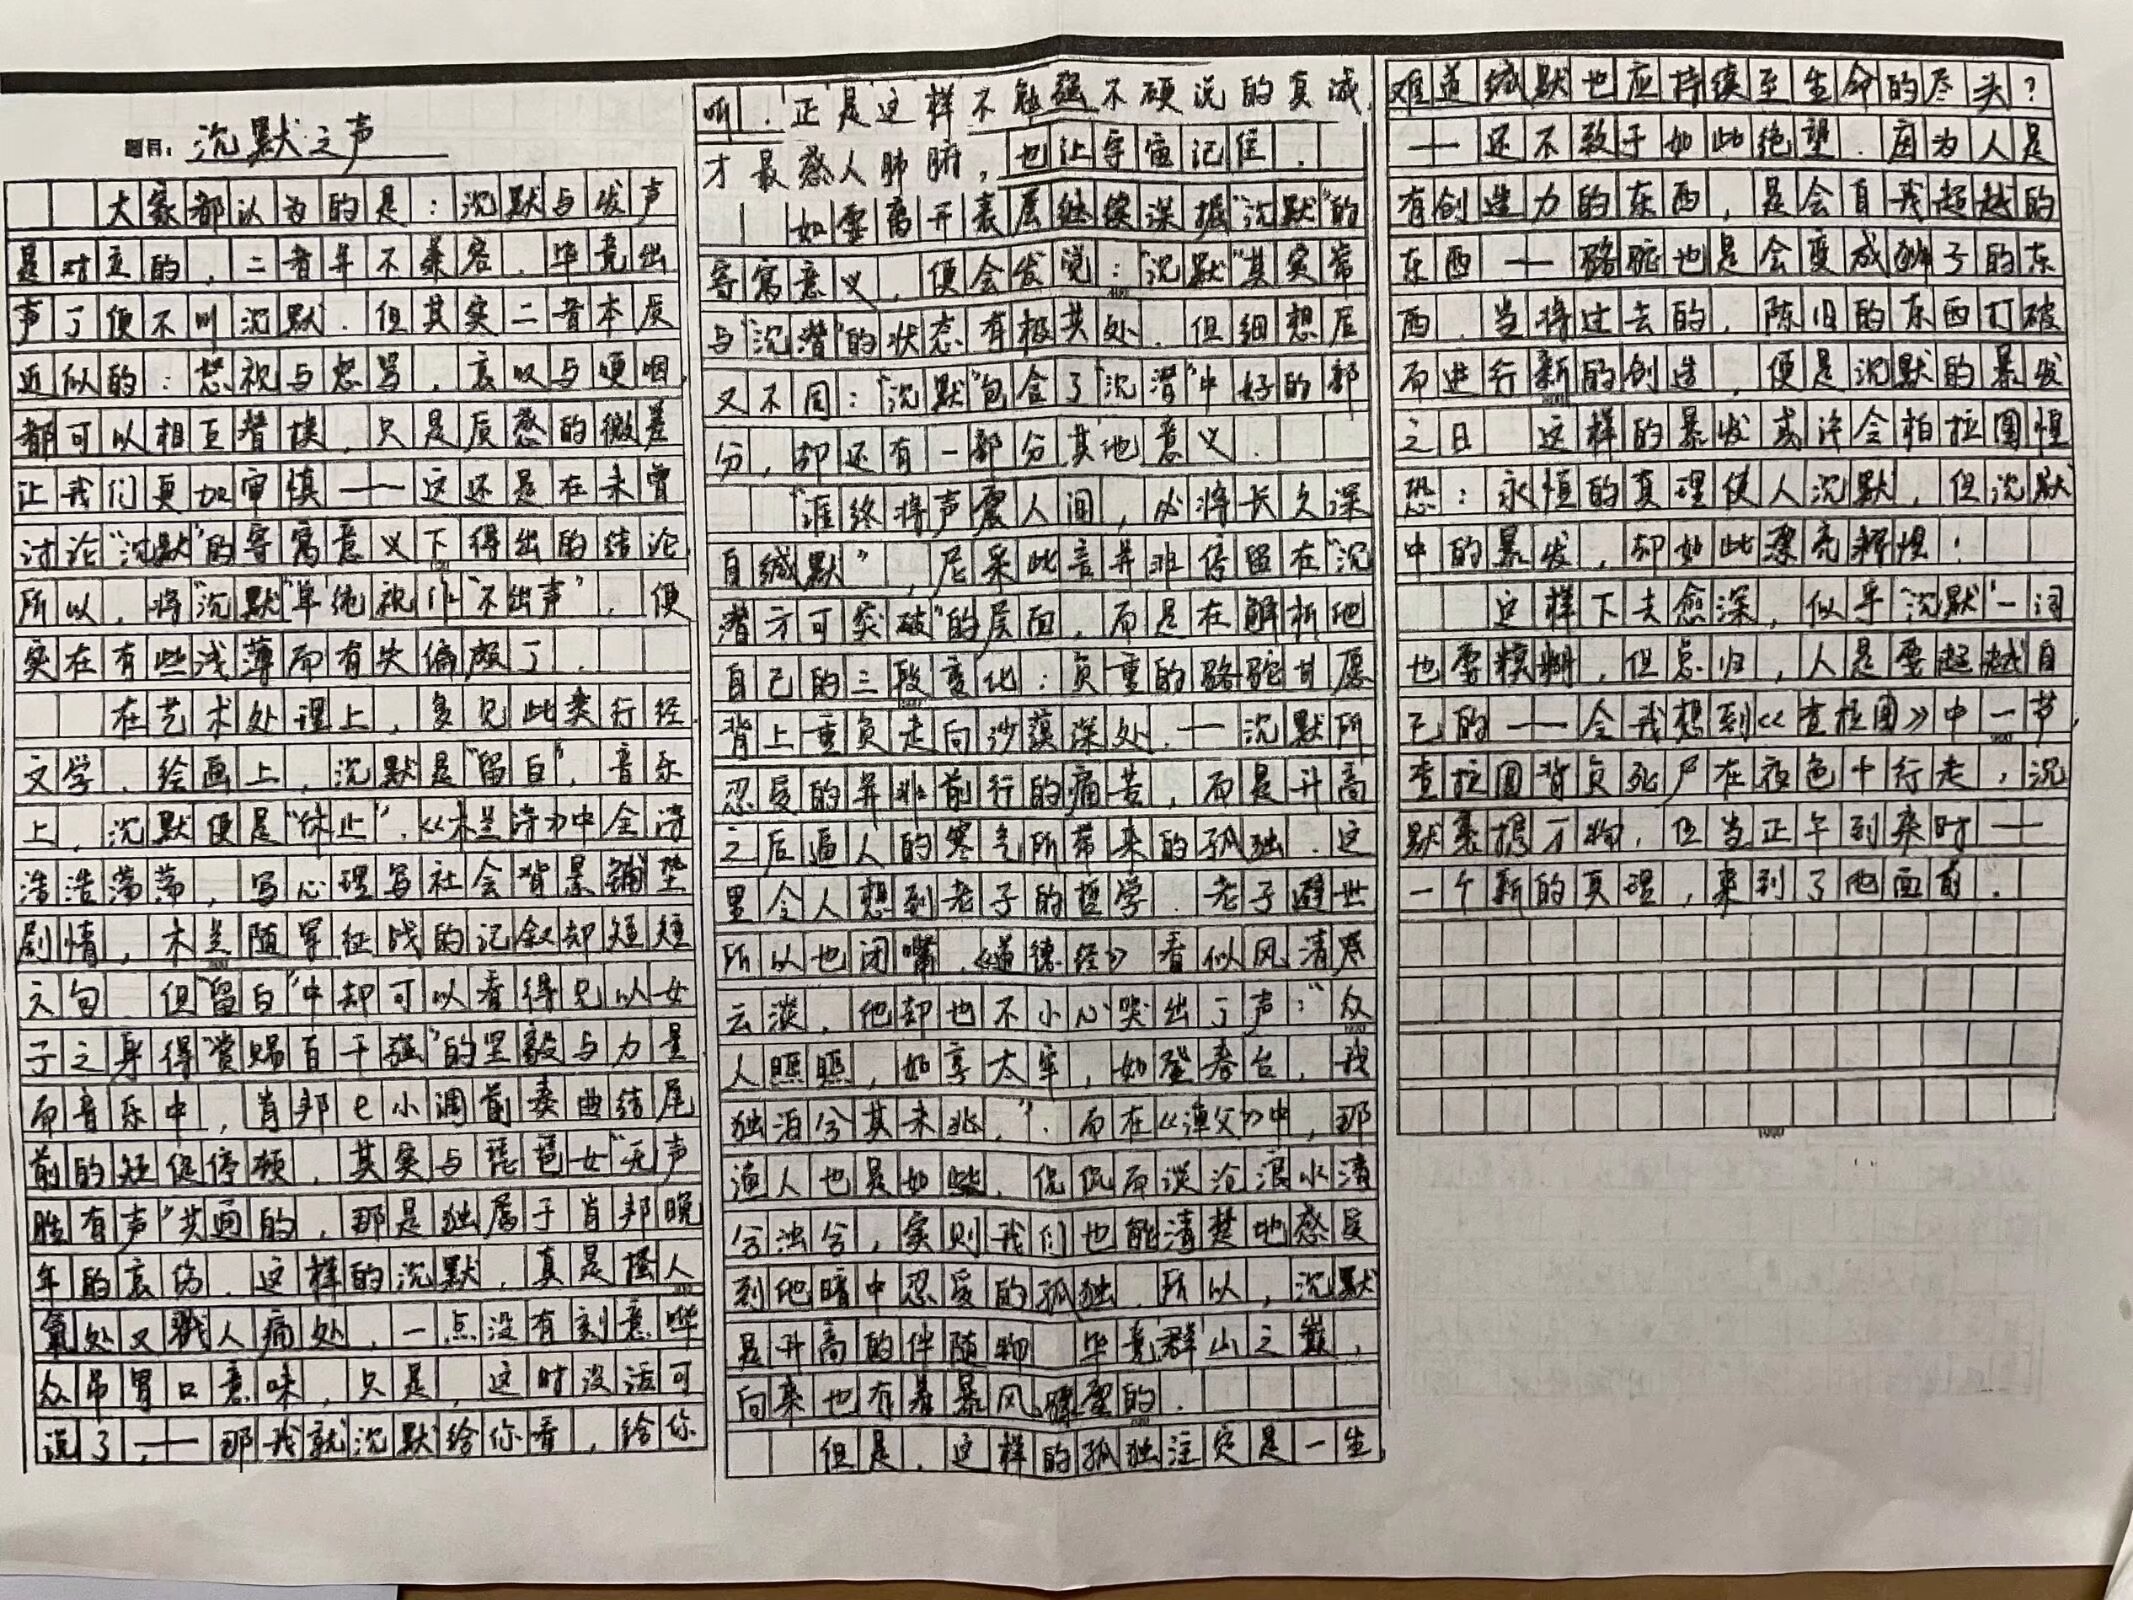 题目：沉默之声
大家都认为的是：沉默与发声
是对立的，二者并不兼容．毕竟出
声了便不叫沉默．但其实二者本质
近似的：怒视与怒骂，哀叹与哽咽，
都可以相互替换，只是质感的微差
让我们更加审慎——这还是在未曾
讨论“沉默”的寄寓意义下得出的结论
所以，将“沉默”单纯视作“不出声”，便
实在有些浅薄而有失偏颇了．
在艺术处理上，多见此类行径．
文学、绘画上，沉默是“留白”，音乐
上，沉默便是“休止”．《木兰诗》中全诗
浩浩荡荡，写心理写社会背景铺垫
剧情，木兰随军征战的记叙却短短
六句．但“留白”中却可以看得见以女
子之身得“赏赐百千强”的坚毅与力量
而音乐中，肖邦e小调前奏曲结尾
前的短促停顿，其实与琵琶女“无声
胜有声”共通的，那是独属于肖邦晚
年的哀伤．这样的沉默，真是搔人
氧处又戳人痛处，一点没有刻意哗
众吊胃口意味，只是，这时没话可
说了，——那我就沉默给你看，给你
听．正是这样不勉强不硬说的真诚，
才最感人肺腑，也让宇宙记住．
如要离开表层继续深掘“沉默”的
寄寓意义，便会发觉：“沉默”其实常
与“沉潜”的状态有极共处．但细想后
又不同：“沉默”包含了“沉潜”中好的部
分，却还有一部分其他意义．
“谁终将声震人间，必将长久深
自缄默”，尼采此言并非停留在“沉
潜方可突破”的层面，而是在解析他
自己的三段变化：负重的骆驼甘愿
背上重负走向沙漠深处．——沉默所
忍受的并非前行的痛苦，而是升高
之后逼人的寒气所带来的孤独．这
里令人想到老子的哲学．老子避世
所以也闭嘴．《道德经》看似风清
云淡，他却也不小心哭出了声：“众
人熙熙，如享太牢，如登春台，我
独泊兮其未兆，”．而在《渔父》中，那
渔人也是如此，侃侃而谈沧浪水清
兮浊兮，实则我们也能清楚地感受
到他暗中忍受的孤独．所以，沉默
是升高的伴随物．毕竟群山之巅，
向来也有着暴风骤雪的．
但是，这样的孤独注定是一生，
难道缄默也应持续至生命的尽头？
——还不致于如此绝望．因为人是
有创造力的东西，是会自我超越的
东西——骆驼也是会变成狮子的东
西．当将过去的，陈旧的东西打破
而进行新的创造，便是沉默的暴发
之日．这样的暴发或许会柏拉图惶
恐：永恒的真理使人沉默，但沉默
中的暴发，却如此漂亮辉煌！
这样下去愈深，似乎“沉默”一词
也要模糊，但总归，人是要超越自
己的——令我想到《查拉图》中一节，
查拉图背负死尸在夜色中行走，沉
默裹挟万物，但当正午到来时——
一个新的真理，来到了他面前．